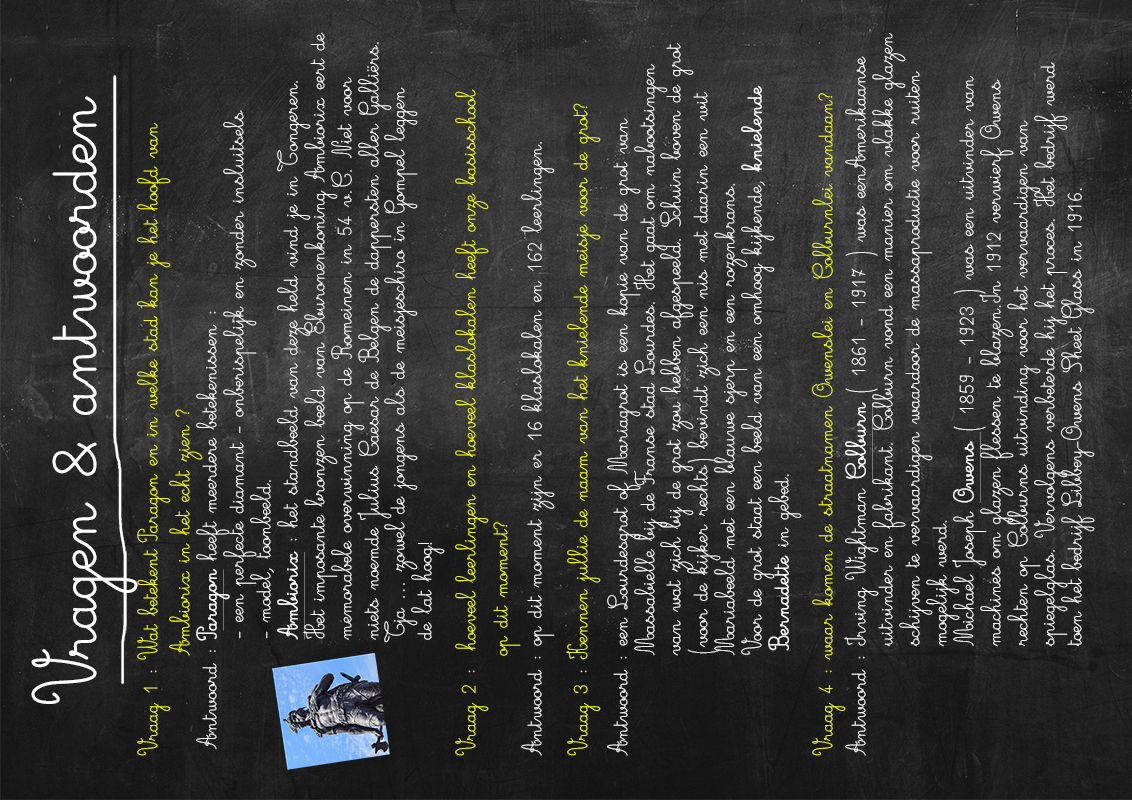 Vragen & antwoorden
Vraag 1 : Wat betekent Paragon en in welke stad kan je het hoofd van
Ambiorix in het echt zien ?
Antwoord : Paragon heeft meerdere betekenissen :
- een perfecte diamant - onberispelijk en zonder insluitsels
- model, toonbeeld.
Ambiorix : het standbeeld van deze held vind je in Tongeren.
Het imposante bronzen beeld van Eburonenkoning Ambiorix eert de
memorabele overwinning op de Romeinen in 54 v.C. Niet voor
niets noemde Julius Caesar de Belgen de dappersten aller Galliërs.
Tja ... zowel de jongens als de meisjeschiro in Gompel leggen
de lat hoog!
Vraag 2 : hoeveel leerlingen en hoeveel klaslokalen heeft onze basisschool
op dit moment?
Antwoord : op dit moment zijn er 16 klaslokalen en 162 leerlingen.
Vraag 3 : Kennen jullie de naam van het knielende meisje voor de grot?
Antwoord : een Lourdesgrot of Mariagrot is een kopie van de grot van
Massabielle bij de Franse stad Lourdes. Het gaat om nabootsingen
van wat zich bij de grot zou hebben afgespeeld. Schuin boven de grot
(voor de kijker rechts) bevindt zich een nis met daarin een wit
Mariabeeld met een blauwe sjerp en een rozenkrans.
Voor de grot staat een beeld van een omhoog kijkende, knielende
Bernadette in gebed.
Vraag 4 : waar komen de straatnamen Owenslei en Colburnlei vandaan?
Antwoord : Irving Wightman Colburn ( 1861 - 1917 ) was een Amerikaanse
uitvinder en fabrikant. Colburn vond een manier om vlakke glazen
schijven te vervaardigen waardoor de massaproductie voor ruiten
mogelijk werd.
Michael Joseph Owens ( 1859 - 1923 ) was een uitvinder van
machines om glazen flessen te blazen.In 1912 verwierf Owens
rechten op Colburns uitvinding voor het vervaardigen van
spiegelglas. Vervolgens verbeterde hij het proces. Het bedrijf werd
toen het bedrijf Libbey-Owens Sheet Glass in 1916.